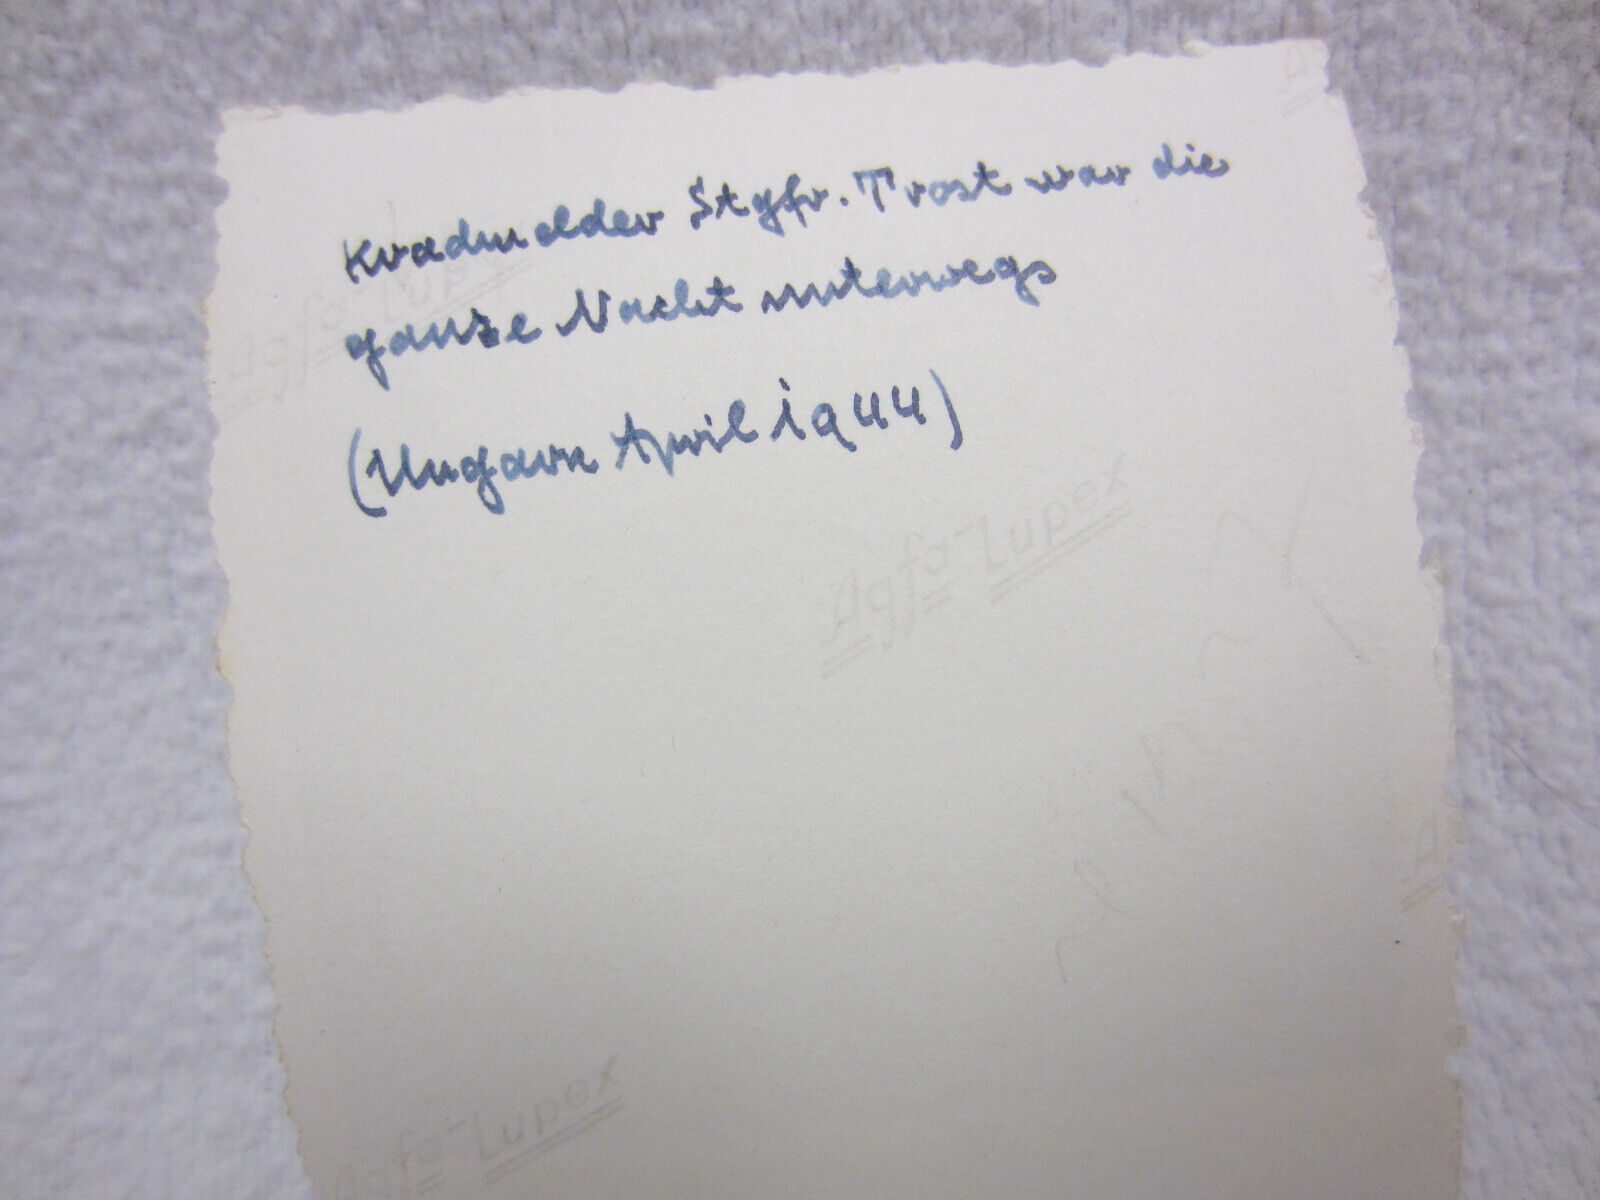 Kradmelder Stgfr. Trost war die
ganze Nacht unterwegs
(Ungarn April 1944)
Agfa-Lupex
Agfa-Lupex
Agfa-Lupex